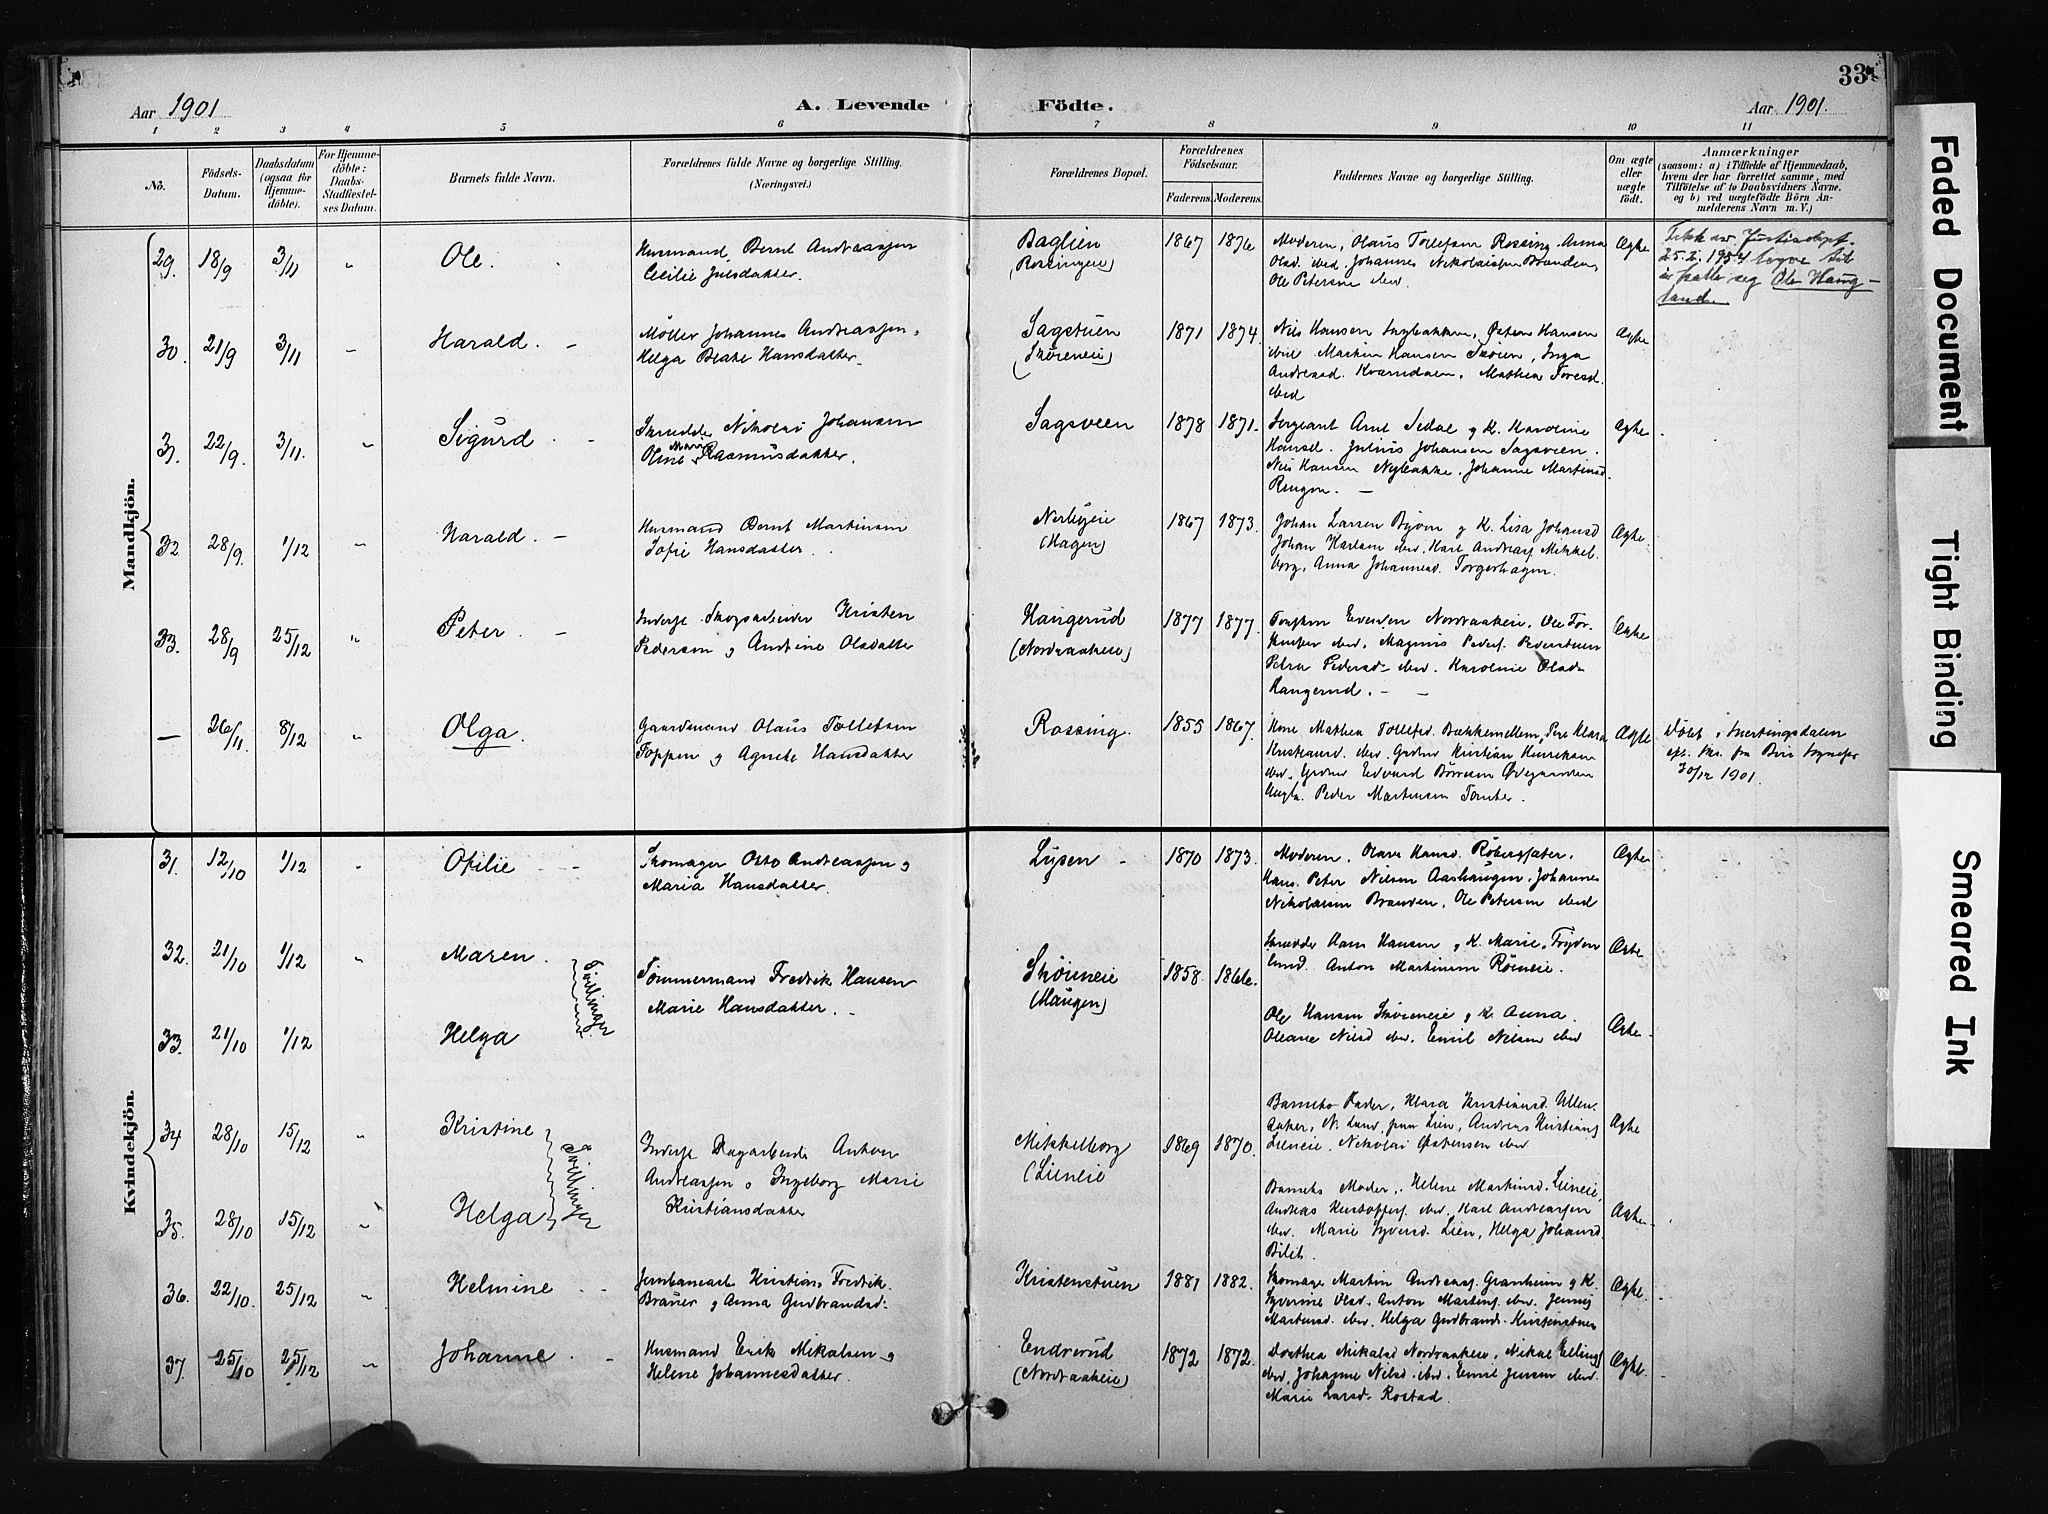 33
Aar 1901 A. Levende Födte. Aar 1901.
1 2 3 4 5 6 7 8 9 10 11
No.
Födsels-
Datum.
Daabsdatum
(ogsaa for
Hjemme-
döbte).
For Hjemme-
döbte:
Daabs-
Stadfæstel-
ses Datum.
Barnets fulde Navn.
Forældrenes fulde Navne og borgerlige Stilling.
(Næringsvei.)
Forældrenes Bopæl.
Forældrenes
Födselsaar.
Faderens. Moderens.
Faddernes Navne og borgerlige Stilling.
Om ægte
eller
uægte
födt.
Anmærkninger
(saasom: a) i Tilfælde af Hjemmedaab,
hvem der har forrettet samme, med
Tilföielse af to Daabsvidners Navne.
og b) ved uægtefödte Börn An-
melderens Navn m. V.)
Mandkjön.
29. 18/9 3/11 " Ole.
Husmand Bernt Andreassen
Cecilie Julsdatter.
Baglien
(Rossingen)
1867 1876
Moderen, Olaus Tollefsen Rossing, Anna
Olsd. ibid, Johannes Nikolaissen Brænden,
Ole Petersen ibid.
Ægte
Fikk av Justisdept.
25.2.1954 løyve til
å kalle seg Ole Haug-
land.
30. 21/9 3/11 " Harald.
Møller Johannes Andreassen,
Helga Beate Hansdatter.
Sagstuen
(Skøreneie)
1871 1874.
Nils Hansen Nybakken, Østen Hansen
ibid. Martin Hansen Skøien, Inga
Andreasd. Kværndalen, Mathea Toresd.
ibid
Ægte
31. 22/9. 3/11. " Sigurd
Skrædder Nikolai Johansen
Oline Marie Rasmusdatter.
Sagsveen
1878 1871.
Sergeant Arne Sedal og K. Karoline
Hansd. Julius Johansen Sagsveen.
Nils Hansen Nybakke. Johanne Martinsd.
Ringen.
Ægte
32 28/9. 1/12 " Harald.
Husmand Bernt Martinsen
Sofie Hansdatter.
Nerbyeie
(Hagen)
1867 1873.
Johan Larsen Byøm og K. Lisa Johansd
Johan Karlsen ibid. Karl Andreass. Mikkel-
borg, Anna Johannesd. Torgerhagen.
Ægte.
33. 28/9 25/12 " Peter.
Inderst Skogsarbeider Kristen
Pedersen og Andrine Olsdatter
Haugerud
(Nordraakeie)
1877 1877.
Evensen Nordraakeie, Ole Tor-
ibid, Magnus Peders.
Petra Pedersd. ibid. Karoline Olsd.
Haugerud.
Ægte
— 26/11. 8/12 " Olga.
Gaardmand Olaus Tollefsen
Toppen og Agnete Hansdatter
Rossing.
1855 1867.
Kone Mathea Tollefsd. Bækkemellem, Pige Klara
Kristiansd. ibid. Gaardbr Kristian Henriksen
ibid. Gaardbr Edvard Børresen Ødegaarden
Ungk. Peder Martinsen Tomter.
Ægte
Døbt i Snertingsdalen
efter fra Biri
30/12 1901.
Kvindekjön.
31. 12/10 1/12 " Otilie
Skomager Otto Andreassen og
Maria Hansdatter.
Lysen
1870 1873.
Moderen, Olava Hansd. Robergsæter.
Hans Peter Nilsen Aashaugen, Johannes
Nikolaisen Brænden, Ole Petersen ibid
Ægte
32. 21/10 1/12 " Maren.
Tvillinger
Tømmermand Fredrik Hansen
Marie Hansdatter.
Skøieneie
(Haugen)
1858 1866.
Skrædder Hans Hansen og K. Marie, Fryden-
lund. Anton Martinsen Røineie.
Ægte
33. 21/10 1/12 Helga
Ole Hansen Skøieneie og K. Anna.
Oleane Nilsd ibid. Emil Nilsen ibid
Ægte
34 28/10 15/12 " Kristine
Tvillinger
Inderst Dagarbeider Anton
Andreassen og Ingeborg Marie
Kristiansdatter
Mikkelborg
(Lieneie
1869 1870.
Barnets Fader, Klara Kristiansd. Ullen-
aaker, N. Lund Lien, Andreas Kristians.
Lieneie. Nikolai Østensen ibid
Ægte
35. 28/10 15/12 " Helga
Barnets Moder, Helene Martinsd. Lieneie,
Andreas Kristoffers. ibid. Karl Andreassen
ibid. Marie Syversd. Lien, Helga Johansd.
Bilit.
Ægte
36. 22/10. 25/12 " Helmine
Jernbanearb. Kristian Fredrik
Braüer og Anna Gudbrandsd.
Kristenstuen
1881 1882.
Skomager Martin Andreass. Granheim og K.
Syverine Olsd. Anton Martins. ibid. Jenny
Martinsd. ibid. Helga Gudbrands. Kristenstuen
Ægte.
37. 25/10 25/12 " Johanne
Husmand Erik Mikalsen og
Helene Johannesdatter.
Endrerud
(Nordraakeie)
1872 1872.
Dorthea Mikalsd Nordraakeie, Mikal Ellings.
ibid, Johanne Nilsd. ibid. Emil Jensen ibid.
Marie Larsd. Rostad.
Ægte.
Faded Document
Tight Binding
Smeared Ink